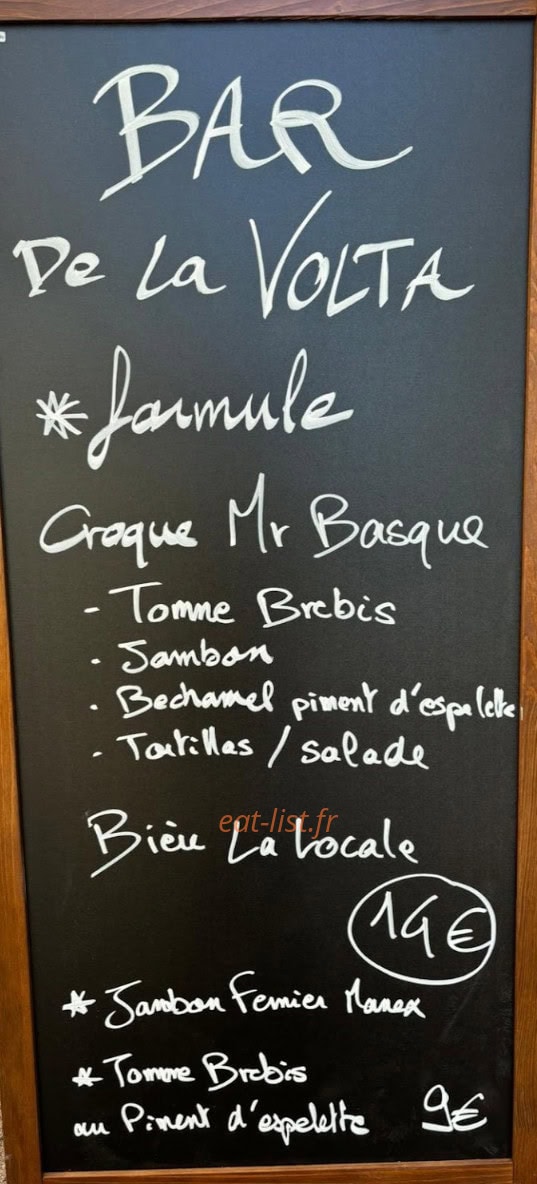 BAR
De La VOLTA
* formule
Croque Mr Basque
- Tomme Brebis
- Jambon
- Bechamel piment d'espelette
- Tortillas / salade
eat-list.fr
Bière La Locale
14€
* Jambon Fermier Manex
* Tomme Brebis
au Piment d'espelette 9€